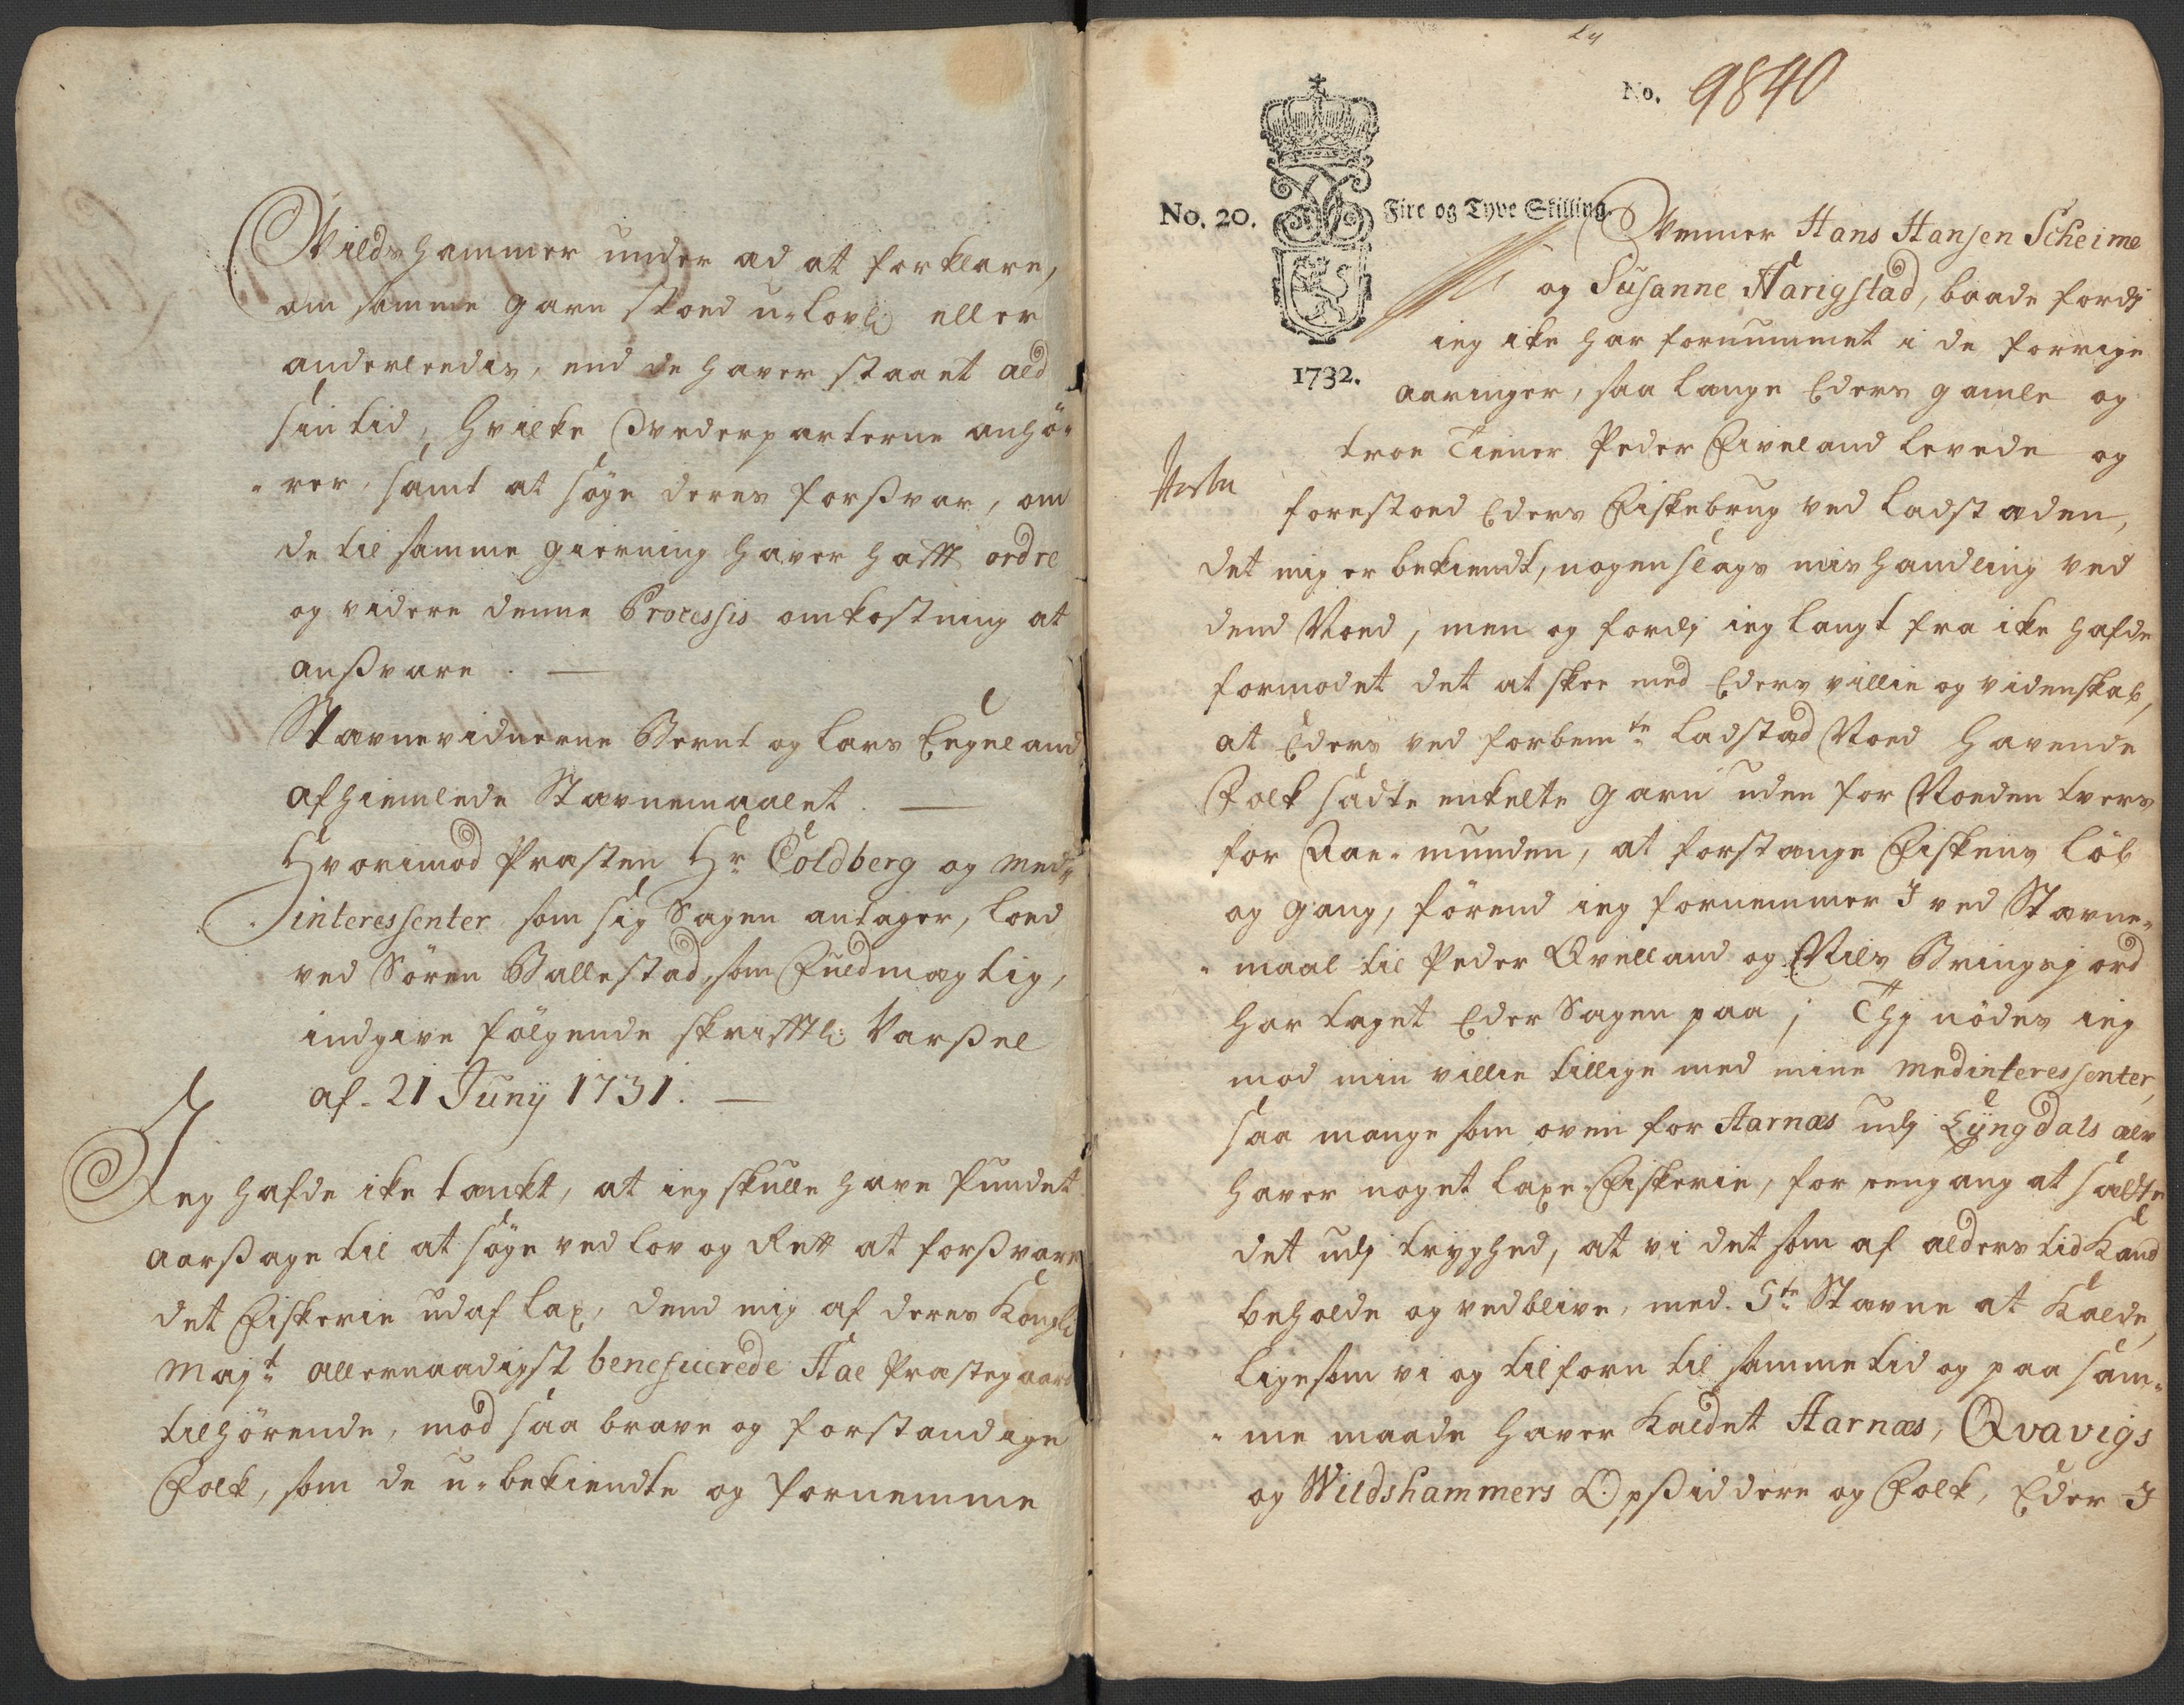 Wildshammer under ed at forklare,
om samme garn stoed u-lovl: eller
anderleedis, end de haver staaet ald
sin tid, hvilke Svederparterne anhö-
-rer, samt at søge deres forsvar, om
de til samme gierning haver hafft ordre
og videre denne Processis omkostning at
ansvare. —
Stævnevidnerne Bernt og Lars Eegeland
afhiemlede Stævnemaalet. —
Hvorimod Præsten Hr Coldberg og med-
interessenter som sig Sagen antager, loed
ved Sören Ballestad, som Fuldmægtig,
indgive fölgende skrifftl: Varsel
af 21 Junij 1731. —
Jeg hafde ike tænkt, at ieg skulle have fundet
aarsage til at søge ved lov og Rett at forsvare
det Fiskerie udaf lax, dend mig af deres Kongl:
Majt allernaadigst beneficerede Aae Præstegaard
tilhörende, mod saa brave og forstandige
Folk, som de u-bekiendte og fornemme
No. 9840
No. 20.
Fire og Tyve Skilling.
1732.
Venner Hans Hansen Scheime
og Susanne Narigstad, baade fordj
ieg ike har fornummet i de forrige
aaringer, saa længe Eders gamle og
troe Tiener Peder Fiveland levede og
forestoed Eders Fiskebrug ved Ladstæden,
det mig er bekiendt, nogen slags mishandling ved
dend Noed, men og fordj ieg langt fra ike hafde
formodet det at skee med Eders villie og videnskab,
at Eders ved forbemte Ladstæd Noed havende
Folk sadte enkelte garn uden for Noeden tvers
for Aae-munden, at forstænge Fiskens löb
og gang, förend ieg fornemmer I ved Stævne-
-maal til Peder Qvelland og Nils Bringsjord
har taget Eder Sagen paa; Thj nödes ieg
mod min villie tillige med mine medinteressenter,
saa mange som oven for Aarnæs udj Lÿngdals elv
haver noget laxe-Fiskerie, for eengang at sætte
det udj tryghed, at vi det som af alders tid kand
beholde og vedblive, med 5te Stævne at kalde,
ligesom vi og tilforn til samme tid og paa sam-
-me maade haver kaldet Aarnæs, Qvavigs
og Wildshammers Opsiddere og Folk, Eder I